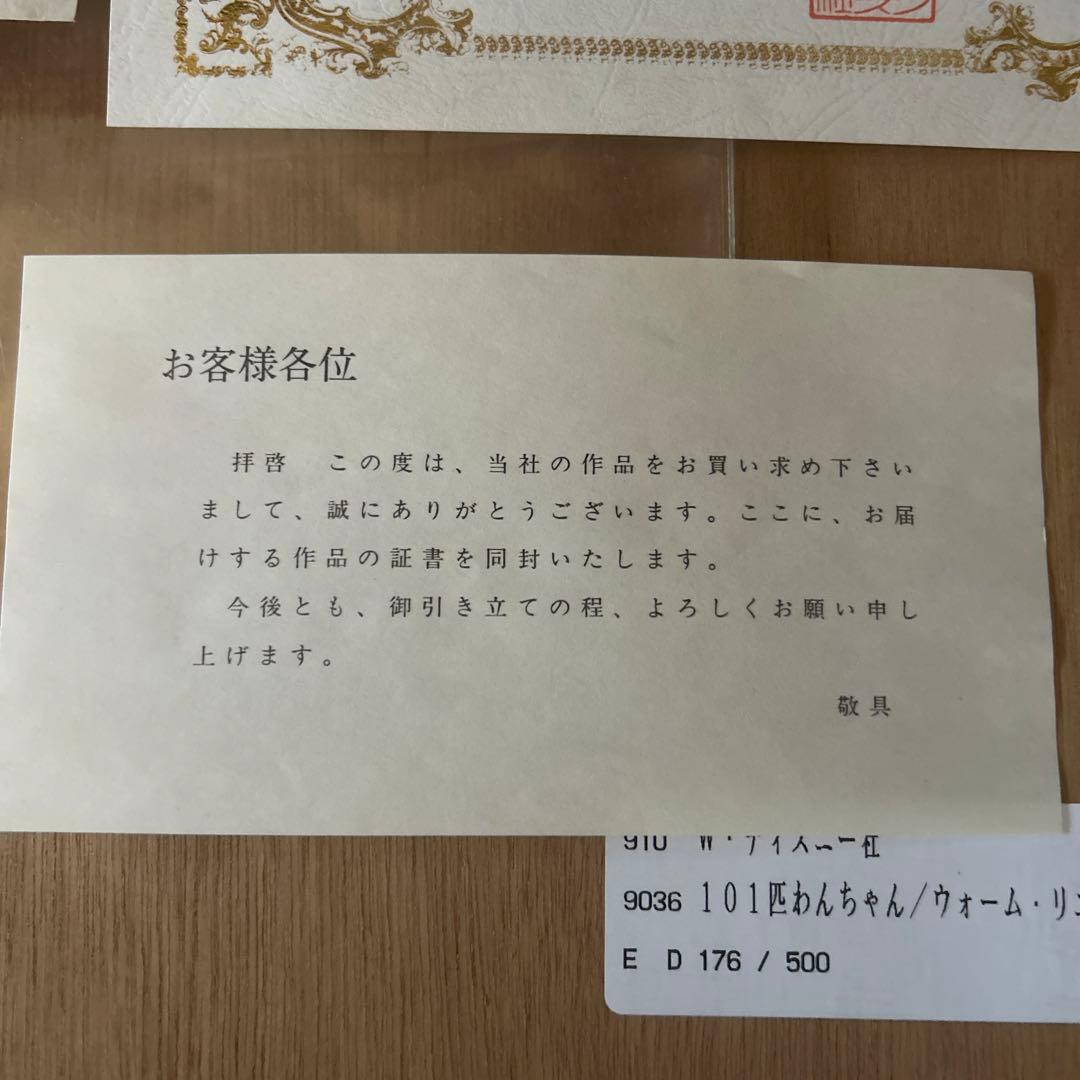 お客様各位
拝啓　この度は、当社の作品をお買い求め下さい
まして、誠にありがとうございます。ここに、お届
けする作品の証書を同封いたします。
今後とも、御引き立ての程、よろしくお願い申し
上げます。
敬具
910 W・ディズニー社
9036 101匹わんちゃん/ウォーム・リ
E D 176 / 500